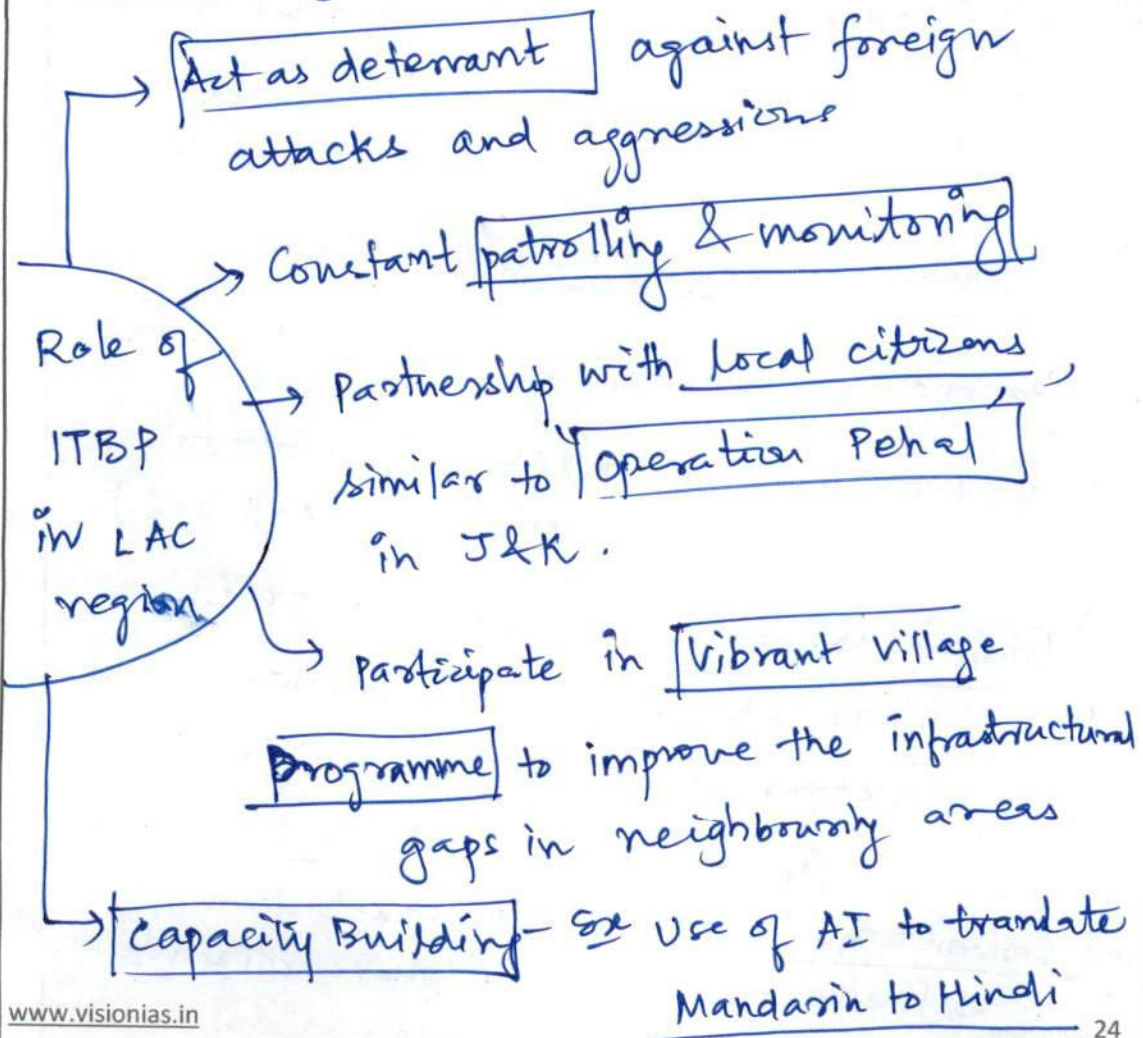 Act as deterrant against foreign
attacks and aggressions
Constant patrolling & monitoring
Role of
ITBP
in LAC
region
Partnership with local citizens,
similar to Operation Pehal
in J&K.
Participate in Vibrant Village
Programme to improve the infrastructural
gaps in neighbouring areas
Capacity Building - Ex Use of AI to translate
Mandarin to Hindi
www.visionias.in
24